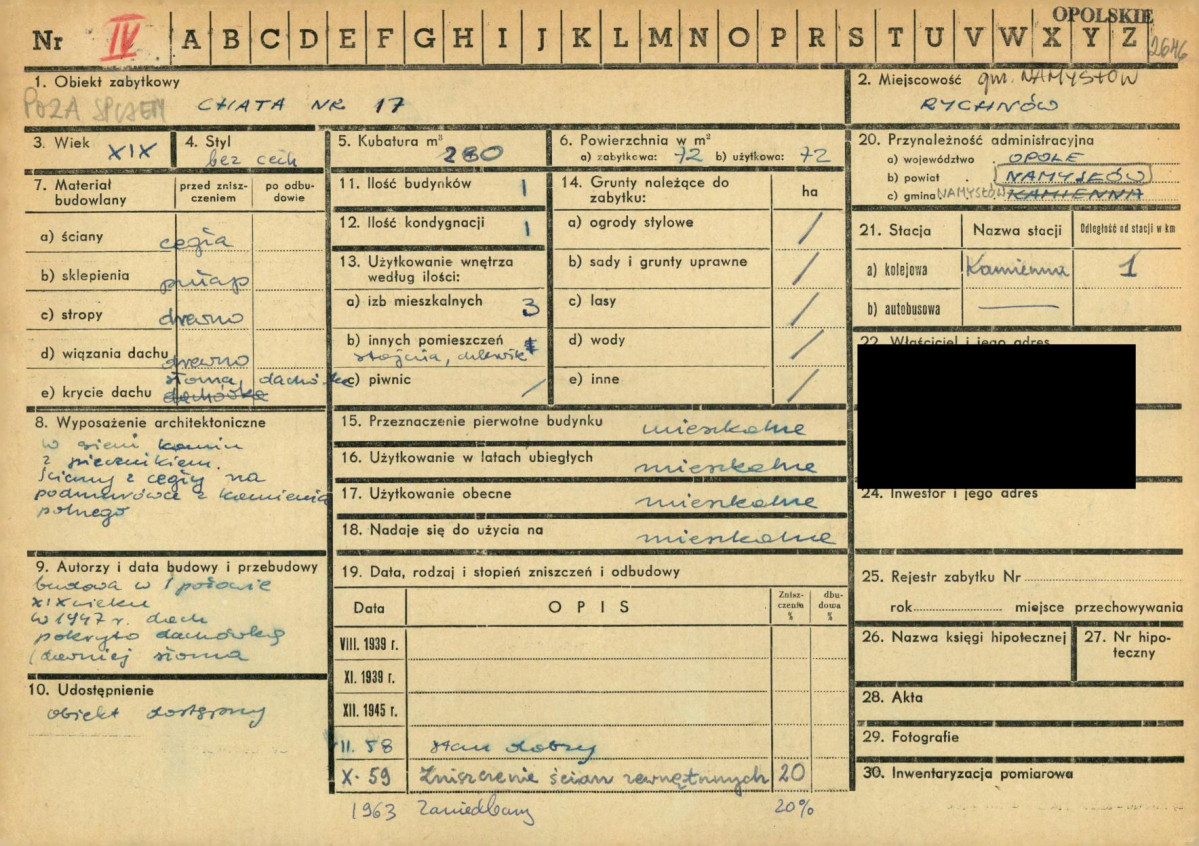 OPOLSKIE
Nr IV A B C D E F G H I J K L M N O P R S T U V W X Y Z 2646
1. Obiekt zabytkowy
POZA SPISEM
CHATA NR 17
2. Miejscowość gm. NAMYSŁÓW
RYCHNÓW
3. Wiek XIX
4. Styl
bez cech
5. Kubatura m³ 280
6. Powierzchnia w m²
a) zabytkowa: 72 b) użytkowa: 72
20. Przynależność administracyjna
a) województwo OPOLE
b) powiat NAMYSŁÓW
c) gmina NAMYSŁÓW KAMIENNA
7. Materiał budowlany
przed zniszczeniem
po odbudowie
a) ściany cegła
b) sklepienia pułap
c) stropy drewno
d) wiązania dachu drewno
słoma, dachówka
e) krycie dachu dachówka
11. Ilość budynków 1
12. Ilość kondygnacji 1
13. Użytkowanie wnętrza
według ilości:
a) izb mieszkalnych 3
b) innych pomieszczeń
stajnia, chlewik
c) piwnic /
14. Grunty należące do
zabytku: ha
a) ogrody stylowe /
b) sady i grunty uprawne /
c) lasy /
d) wody /
e) inne /
21. Stacja Nazwa stacji Odległość od stacji w km
a) kolejowa Kamienna 1
b) autobusowa —
22. Właściciel i jego adres
24. Inwestor i jego adres
8. Wyposażenie architektoniczne
w sieni komin
z piecznikiem.
Ściany z cegły na
podmurówce z kamienia
polnego
15. Przeznaczenie pierwotne budynku mieszkalne
16. Użytkowanie w latach ubiegłych mieszkalne
17. Użytkowanie obecne mieszkalne
18. Nadaje się do użycia na mieszkalne
9. Autorzy i data budowy i przebudowy
budowa w I połowie
XIX wieku
w 1947 r. dach
pokryto dachówką
(dawniej słoma
10. Udostępnienie
obiekt dostępny
19. Data, rodzaj i stopień zniszczeń i odbudowy
Data OPIS Zniszczenia % dbudowa %
VIII. 1939 r.
XI. 1939 r.
XII. 1945 r.
II. 58 stan dobry
X. 59 Zniszczenie ścian zewnętrznych 20
1963 Zaniedbany 20%
25. Rejestr zabytku Nr
rok miejsce przechowywania
26. Nazwa księgi hipotecznej
27. Nr hipoteczny
28. Akta
29. Fotografie
30. Inwentaryzacja pomiarowa